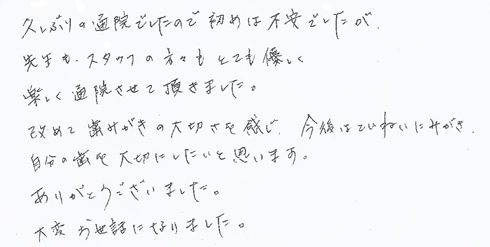 久しぶりの通院でしたので初めは不安でしたが、
先生も、スタッフの方々もとても優しく
楽しく通院させて頂きました。
改めて歯みがきの大切さを感じ、今後はていねいにみがき、
自分の歯を大切にしたいと思います。
ありがとうございました。
大変お世話になりました。